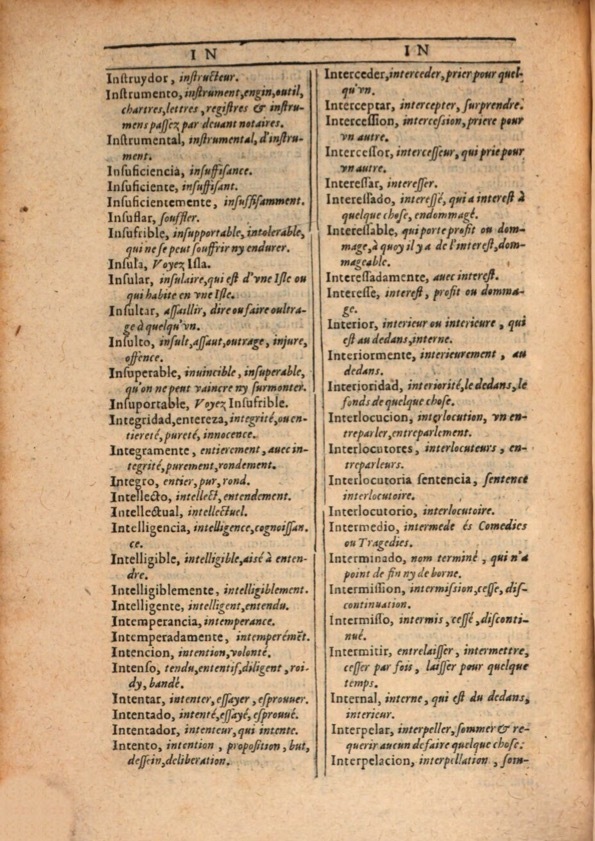 IN
Inſtruydor, inſtructeur.
Inſtrumento, inſtrument, engin, outil,
chartres, lettres, regiſtres & inſtru-
mens paſſez par deuant notaires.
Inſtrumental, inſtrumental, d'inſtru-
ment.
Inſuficiencia, inſuffiſance.
Inſuficiente, inſuffiſant.
Inſuficientemente, inſuffiſamment.
Inſuflar, ſouffler.
Inſufrible, inſupportable, intolerable,
qui ne ſe peut ſouffrir ny endurer.
Inſula, Voyez Iſla.
Inſular, inſulaire, qui eſt d'vne Iſle ou
qui habite en vne Iſle.
Inſultar, aſſaillir, dire ou faire oultra-
ge à quelqu'vn.
Inſulto, inſult, aſſaut, outrage, injure,
offence.
Inſuperable, inuincible, inſuperable,
qu'on ne peut vaincre ny ſurmonter.
Inſuportable, Voyez Inſufrible.
Integridad, entereza, integrité, ou en-
tiereté, pureté, innocence.
Integramente, entierement, auec in-
tegrité, purement, rondement.
Integro, entier, pur, rond.
Intellecto, intellect, entendement.
Intellectual, intellectuel.
Intelligencia, intelligence, cognoiſſan-
ce.
Intelligible, intelligible, aisé à enten-
dre.
Intelligiblemente, intelligiblement.
Intelligente, intelligent, entendu.
Intemperancia, intemperance.
Intemperadamente, intemperémēt.
Intencion, intention, volonté.
Intenſo, tendu, ententif, diligent, roi-
dy, bandé.
Intentar, intenter, eſſayer, eſprouuer.
Intentado, intenté, eſſayé, eſprouué.
Intentador, intenteur, qui intente.
Intento, intention, propoſition, but,
deſſein, deliberation.
IN
Interceder, interceder, prier pour quel-
qu'vn.
Interceptar, intercepter, ſurprendre.
Interceſſion, interceſſion, priere pour
vn autre.
Interceſſor, interceſſeur, qui prie pour
vn autre.
Intereſſar, intereſſer.
Intereſſado, intereſſé, qui a intereſt à
quelque choſe, endommagé.
Intereſſable, qui porte profit ou dom-
mage, à quoy il y a de l'intereſt, dom-
mageable.
Intereſſadamente, auec intereſt.
Intereſſe, intereſt, profit ou domma-
ge.
Interior, interieur ou interieure, qui
eſt au dedans, interne.
Interiormente, interieurement, au
dedans.
Interioridad, interiorité, le dedans, le
fonds de quelque choſe.
Interlocucion, interlocution, vn en-
treparler, entreparlement.
Interlocutores, interlocuteurs, en-
treparleurs.
Interlocutoria ſentencia, ſentence
interlocutoire.
Interlocutorio, interlocutoire.
Intermedio, intermede és Comedies
ou Tragedies.
Interminado, nom terminé, qui n'a
point de fin ny de borne.
Intermiſſion, intermiſſion, ceſſe, diſ-
continuation.
Intermiſſo, intermis, ceſſé, diſconti-
nué.
Intermitir, entrelaiſſer, intermettre,
ceſſer par fois, laiſſer pour quelque
temps.
Internal, interne, qui eſt du dedans,
interieur.
Interpelar, interpeller, ſommer & re-
querir aucun de faire quelque choſe.
Interpelacion, interpellation, ſom-